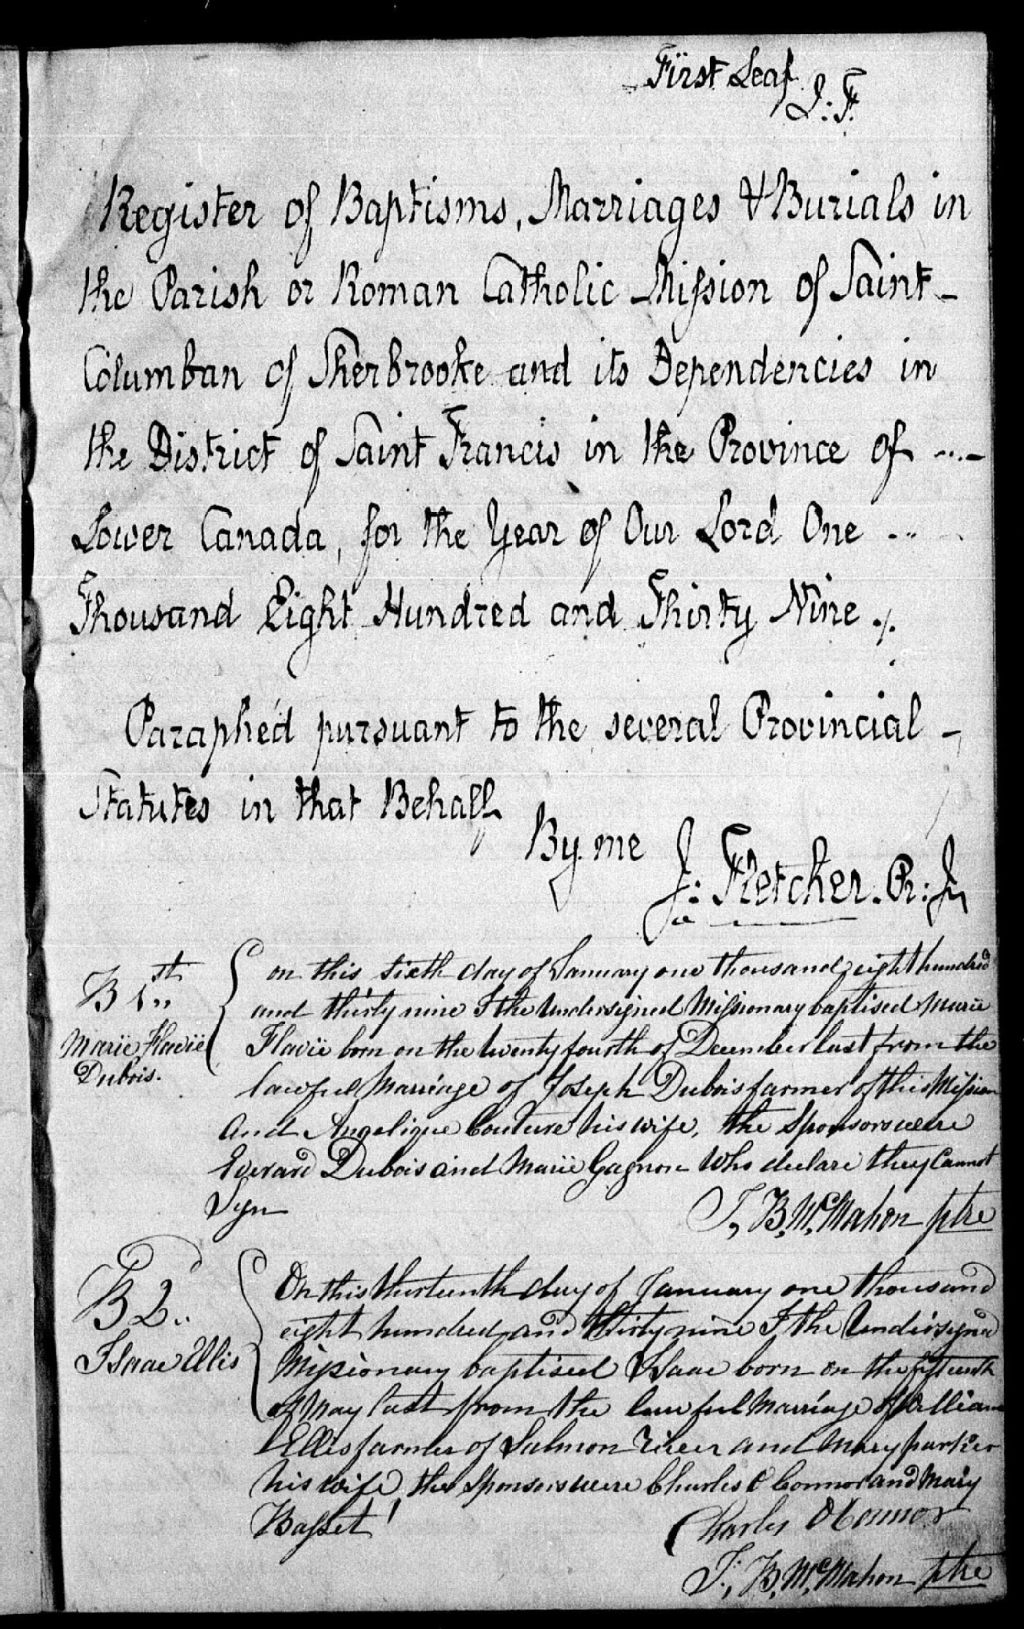 First Leaf J: F.
Register of Baptisms, Marriages & Burials in
the Parish or Roman Catholic Mission of Saint
Columban of Sherbrooke and its Dependencies in
the District of Saint Francis in the Province of
Lower Canada, for the Year of Our Lord One
Thousand Eight Hundred and Thirty Nine
Paraphe'd pursuant to the several Provincial
Statutes in that Behalf
By me
J: Fletcher. Pr: J
B 1st
Marie Flavie
Dubois.
on this sixth day of January one thousand eight hundred
and thirty nine I the Undersigned Missionary baptised Marie
Flavie born on the twenty fourth of December last from the
lawful Marriage of Joseph Dubois farmer of this Mission
And Angelique Couture his wife, the Sponsors were
Everard Dubois and Marie Gagnon Who declare they Cannot
Sign
J, B, McMahon ptre
B 2
Isaac Ellis
On this thirteenth day of January one thousand
eight hundred and thirty nine I the Undersign'd
Missionary baptised Isaac born on the fifteenth
of May last from the lawful Marriage of William
Ellis farmer of Salmon River and Mary parker
his wife, the Sponsors were Charles O Connor and Mary
Basset
Charles O Connor
J, B, McMahon ptre